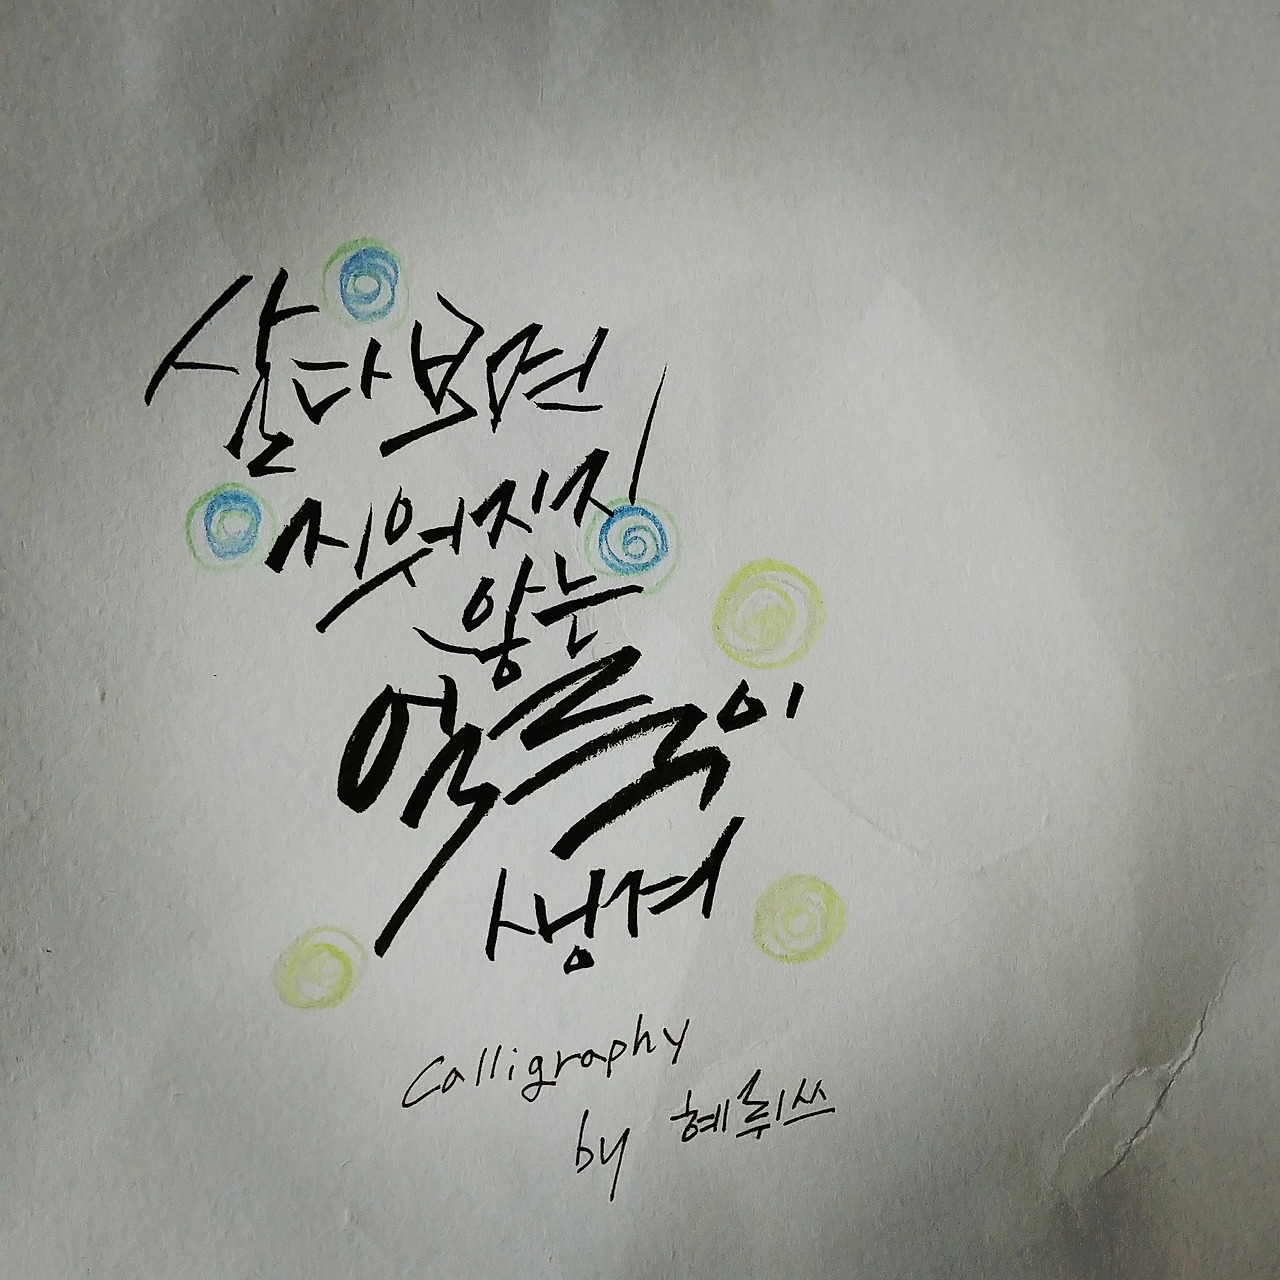 살다보면
지워지지
않는
얼룩이
생겨
Calligraphy
by 혜뤼쓰